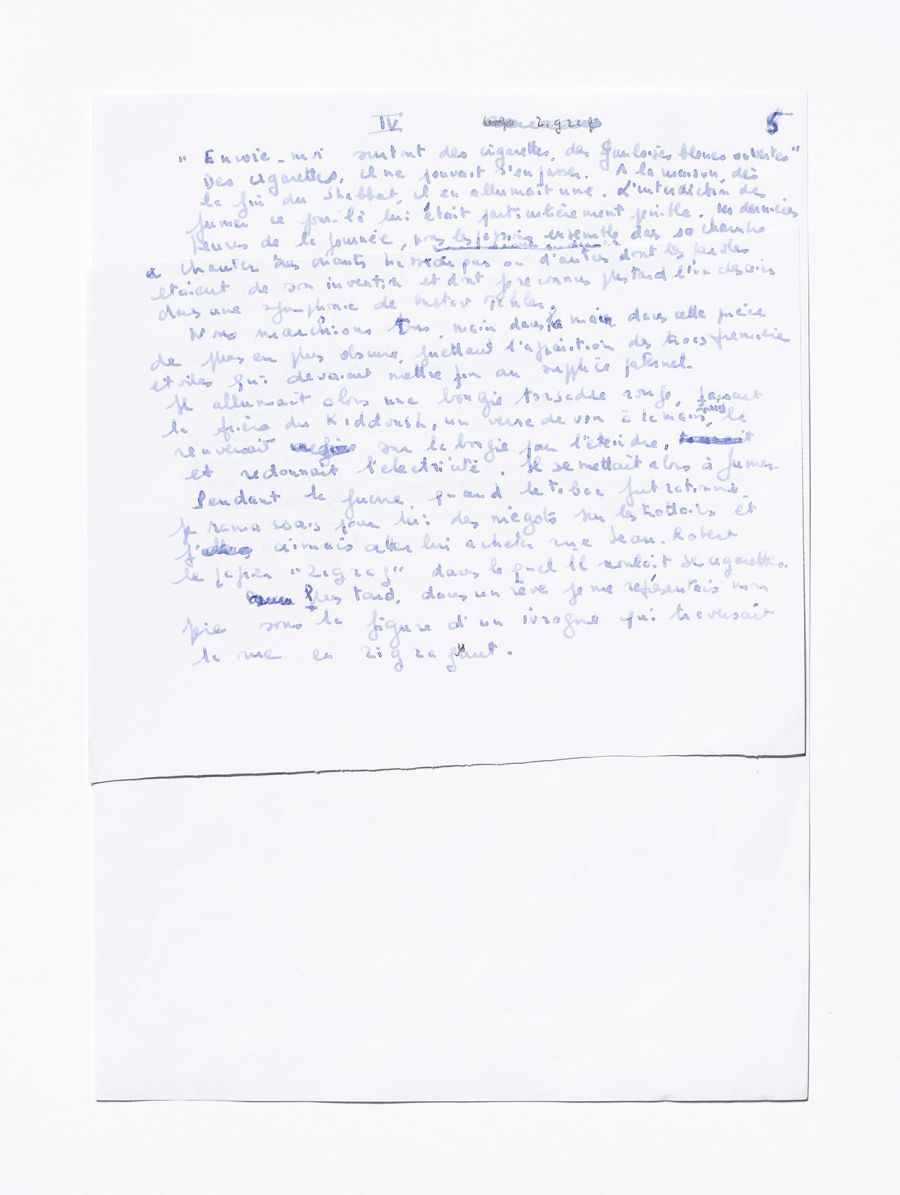 IV zigzag 5
"Envoie-moi surtout des cigarettes, des Gauloises bleues ou vertes"
Des cigarettes, il ne pouvait s'en passer. A la maison, dès
la fin du Shabbat, il en allumait une. L'interdiction de
fumer ce jour-là lui était particulièrement pénible. les dernières
heures de la journée, nous les passions ensemble dans sa chambre
à chanter des chants ou d'autres dont les paroles
étaient de son invention et dont je reconnus plus tard l'un des airs
dans une symphonie de Gustav Mahler.
Nous marchions tous, main dans la main dans cette pièce
de plus en plus obscure, guettant l'apparition des trois premières
etoiles qui devaient mettre fin au supplice paternel.
Il allumait alors une bougie torsadée rouge, faisait
la prière du Kiddoush, un verre de vin à la main, le
renversait sur la bougie pour l'éteindre,
et redonnait l'electricité. Il se mettait alors à fumer.
Pendant la guerre, quand le tabac fut rationné,
je ramassais pour lui des mégots sur les trottoirs et
j'aimais aller lui acheter rue Jean-Robert
le papier "Zigzag" dans lequel il roulait ses cigarettes.
Plus tard, dans un rêve je me représentais mon
père sous la figure d'un ivrogne qui traversait
la rue en zigzagant.